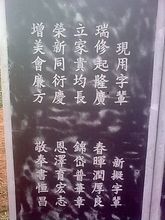 現用字輩
瑞修起隆廣
立家貴均長
榮新同衍慶
增美會方
新擬字輩
春暉潤厚良
錦岱普華章
恩澤育宏志
敬奉書恒昌